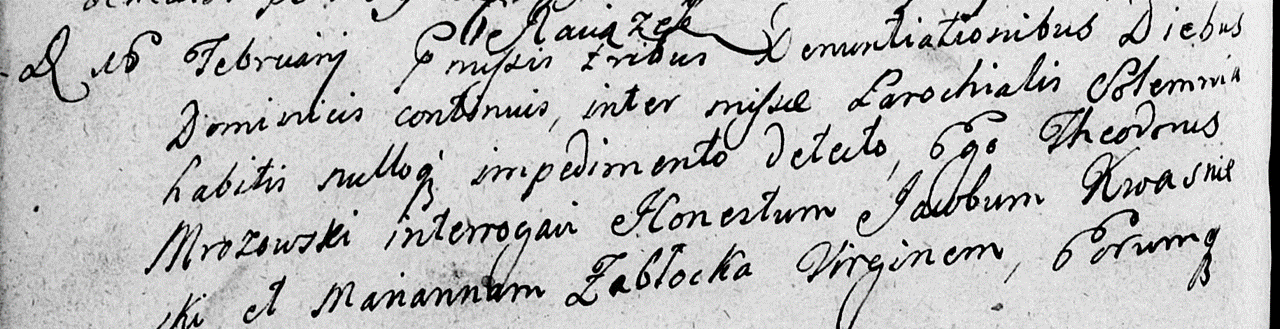 de Kawązek
D 16 Februarij Pmissis tribus Denuntiationibus Diebus
Dominicis continuis, inter missae Parochialis Solemnia
habitis nulloq impedimento detecto, Ego Theodorus
Mrozowski interrogavi Honestum Jacobum Kwasnie
ski et Mariannam Zabłocka Virginem, Eorumq